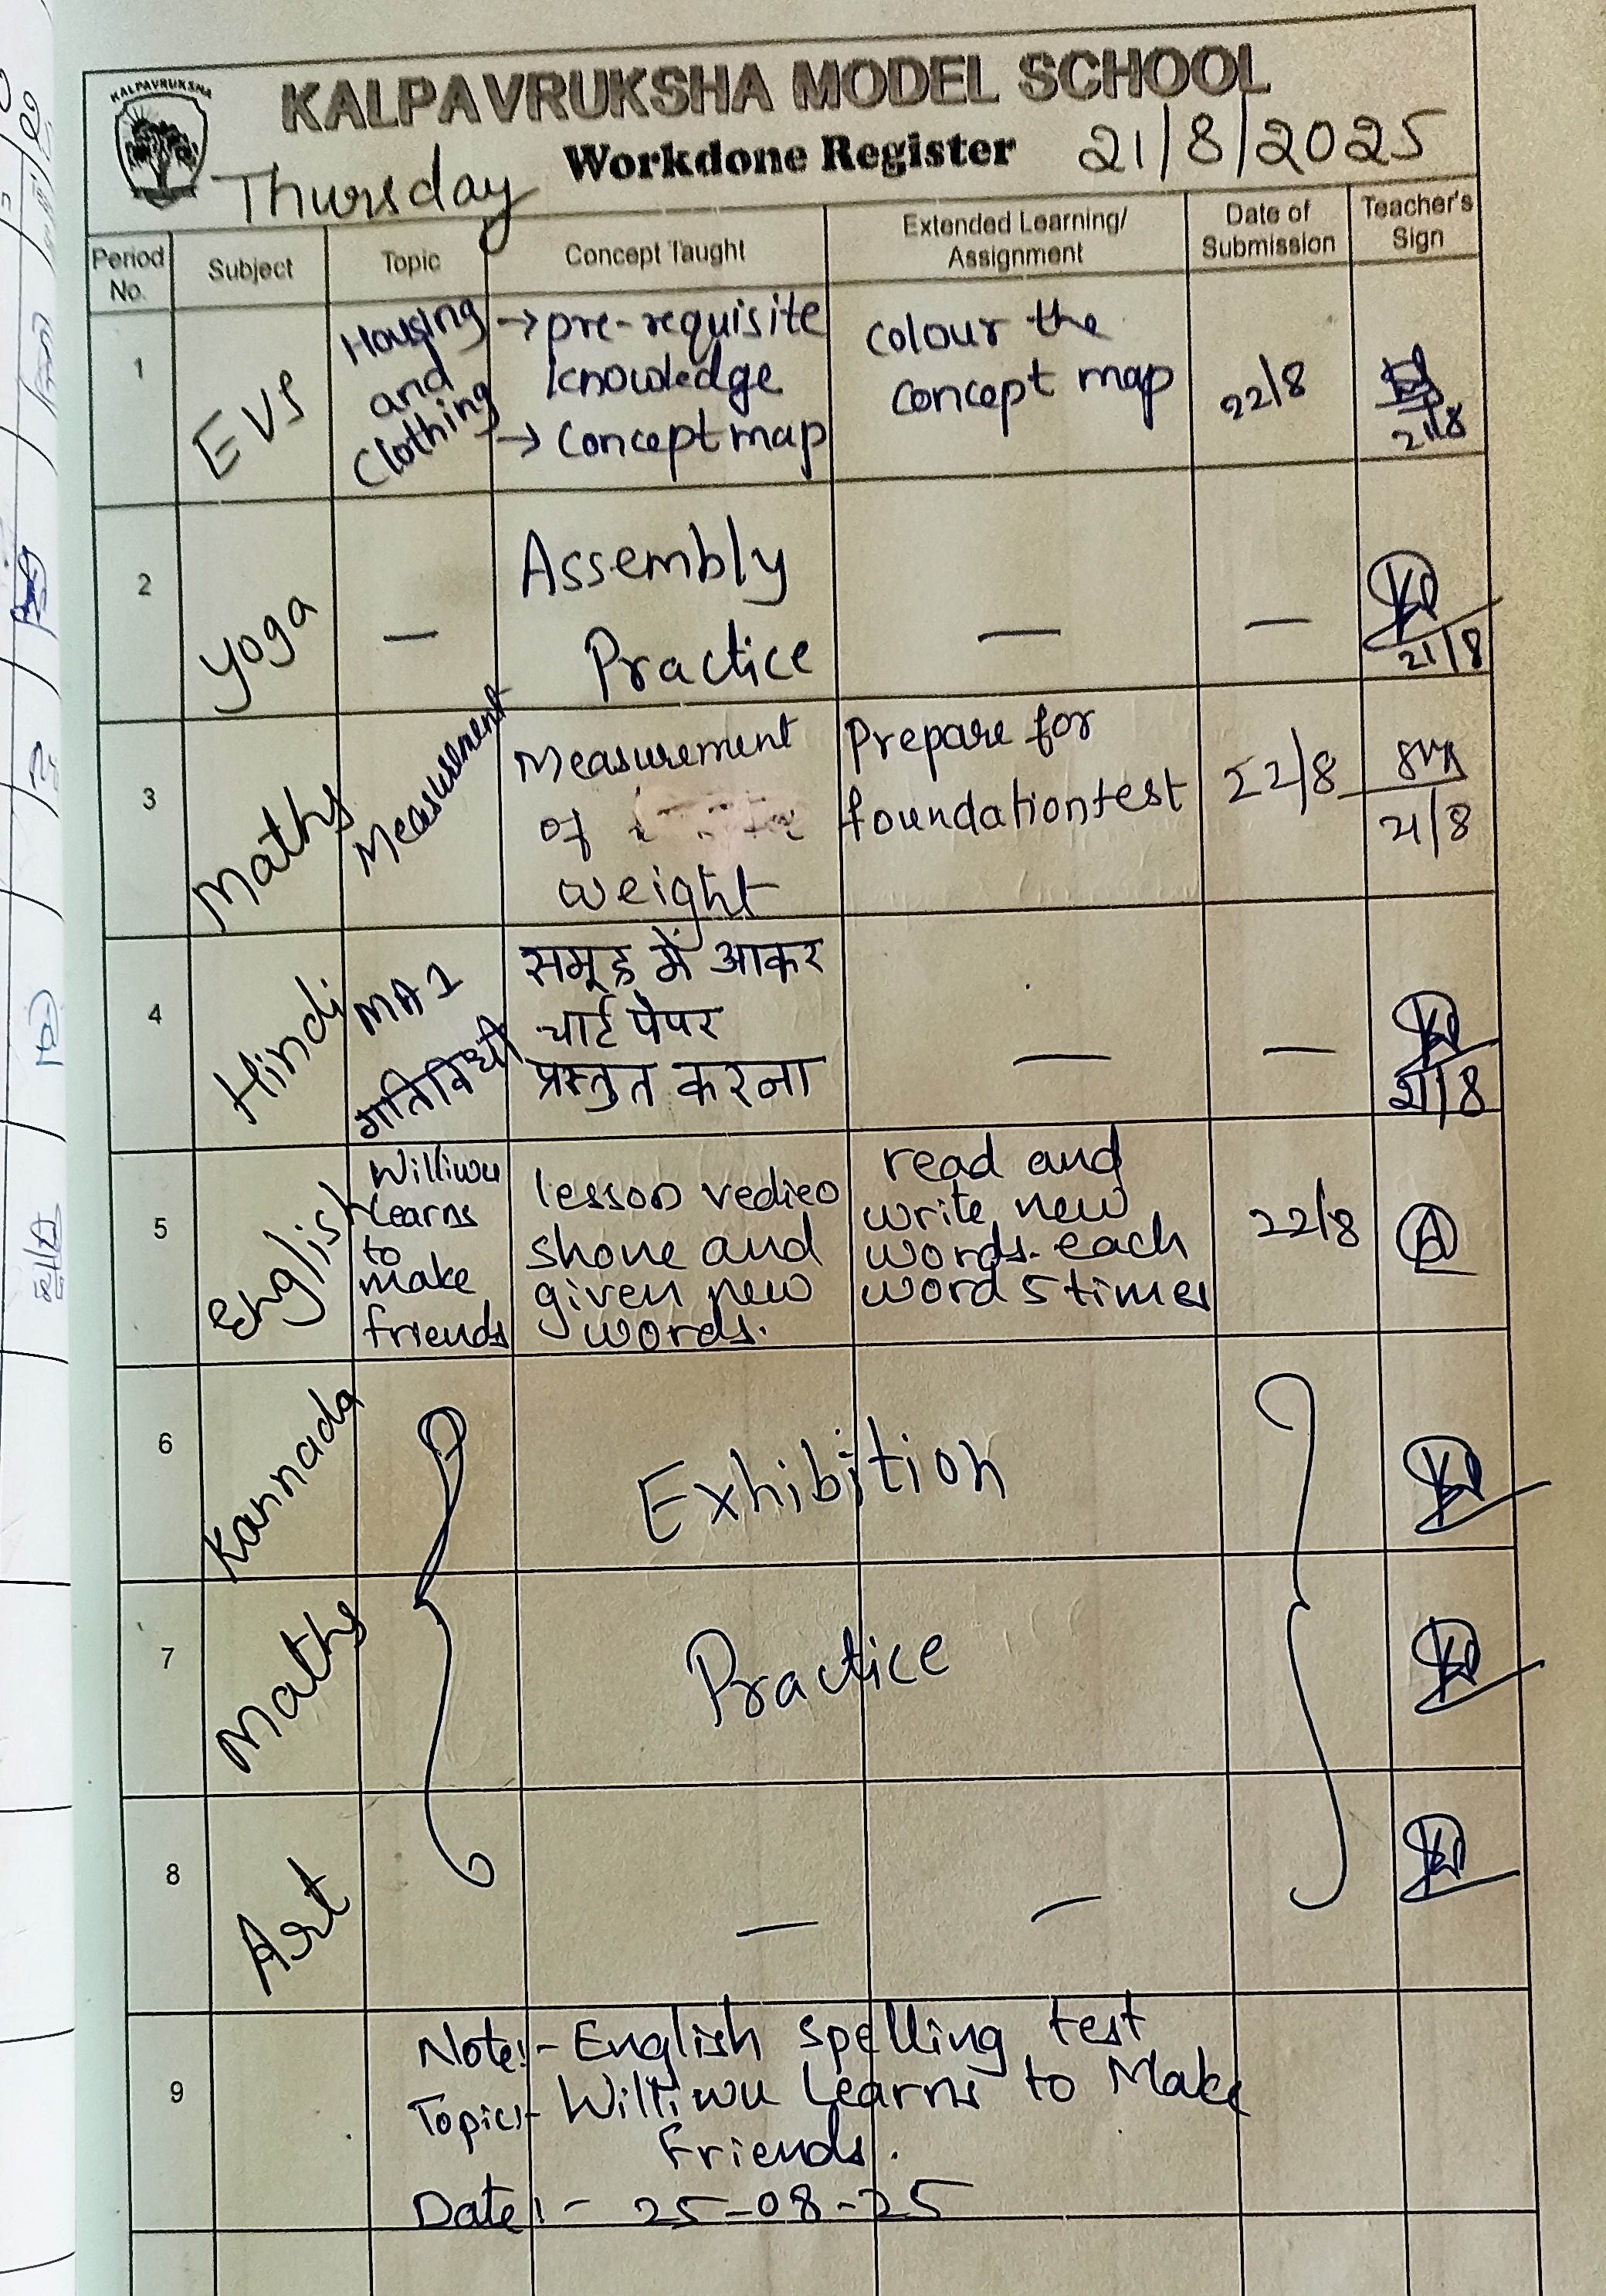 KALPAVRUKSHA
KALPAVRUKSHA MODEL SCHOOL
Thursday Workdone Register 21/8/2025
Period No. Subject Topic Concept Taught Extended Learning/ Assignment Date of Submission Teacher's Sign
1 EVS
Housing
and
Clothing
→ pre-requisite
knowledge
→ Concept map
Colour the
concept map
22/8
21/8
2 Yoga
—
Assembly
Practice
— —
21/8
3 Maths
Measurement
Measurement
of
weight
Prepare for
foundation test
22/8
21/8
4 Hindi
MA 1
गतिविधी
समूह में आकर
चार्ट पेपर
प्रस्तुत करना
— —
21/8
5 English
Williwu
learns
to
make
friends
lesson vedieo
shone and
given new
words.
read and
write new
words. each
word 5 times
22/8
6 Kannada
Exhibition
7 Maths
Practice
8 Art
— —
9
Note:- English spelling test
Topic:- Williwu Learns to Make
Friends.
Date:- 25-08-25